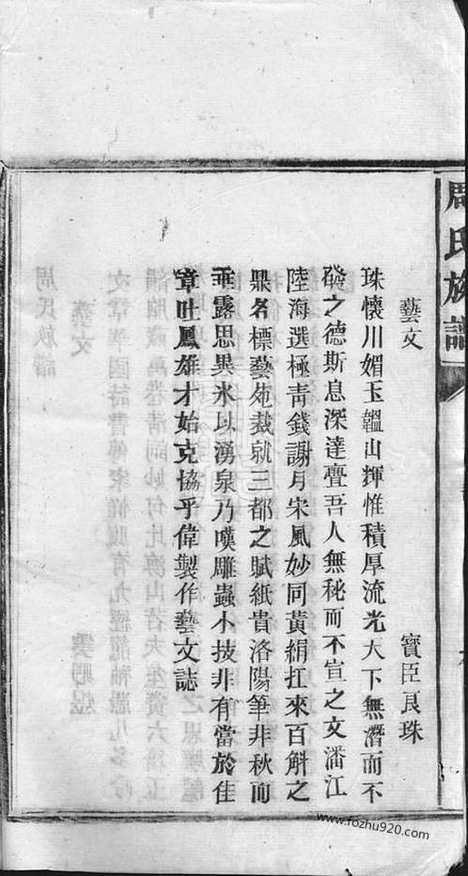 周氏族譜
藝文
寳臣良珠
珠懷川媚玉韞山輝惟積厚流光天下無潛而不
發之德斯息深達亹吾人無秘而不宣之文潘江
陸海選極靑錢謝月宋風妙同黃絹扛來百斛之
鼎名標藝苑裁就三都之賦紙貴洛陽筆非秋而
垂露思異水以湧泉乃嘆雕蟲小技非有當於佳
章吐鳳雄才始克協乎偉製作藝文誌
www.fozhu920.com